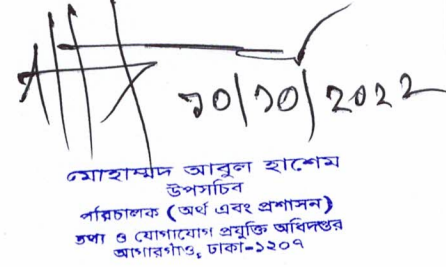 ১০/১০/2022
মোহাম্মদ আবুল হাশেম
উপসচিব
পরিচালক (অর্থ এবং প্রশাসন)
তথ্য ও যোগাযোগ প্রযুক্তি অধিদপ্তর
আগারগাঁও, ঢাকা-১২০৭